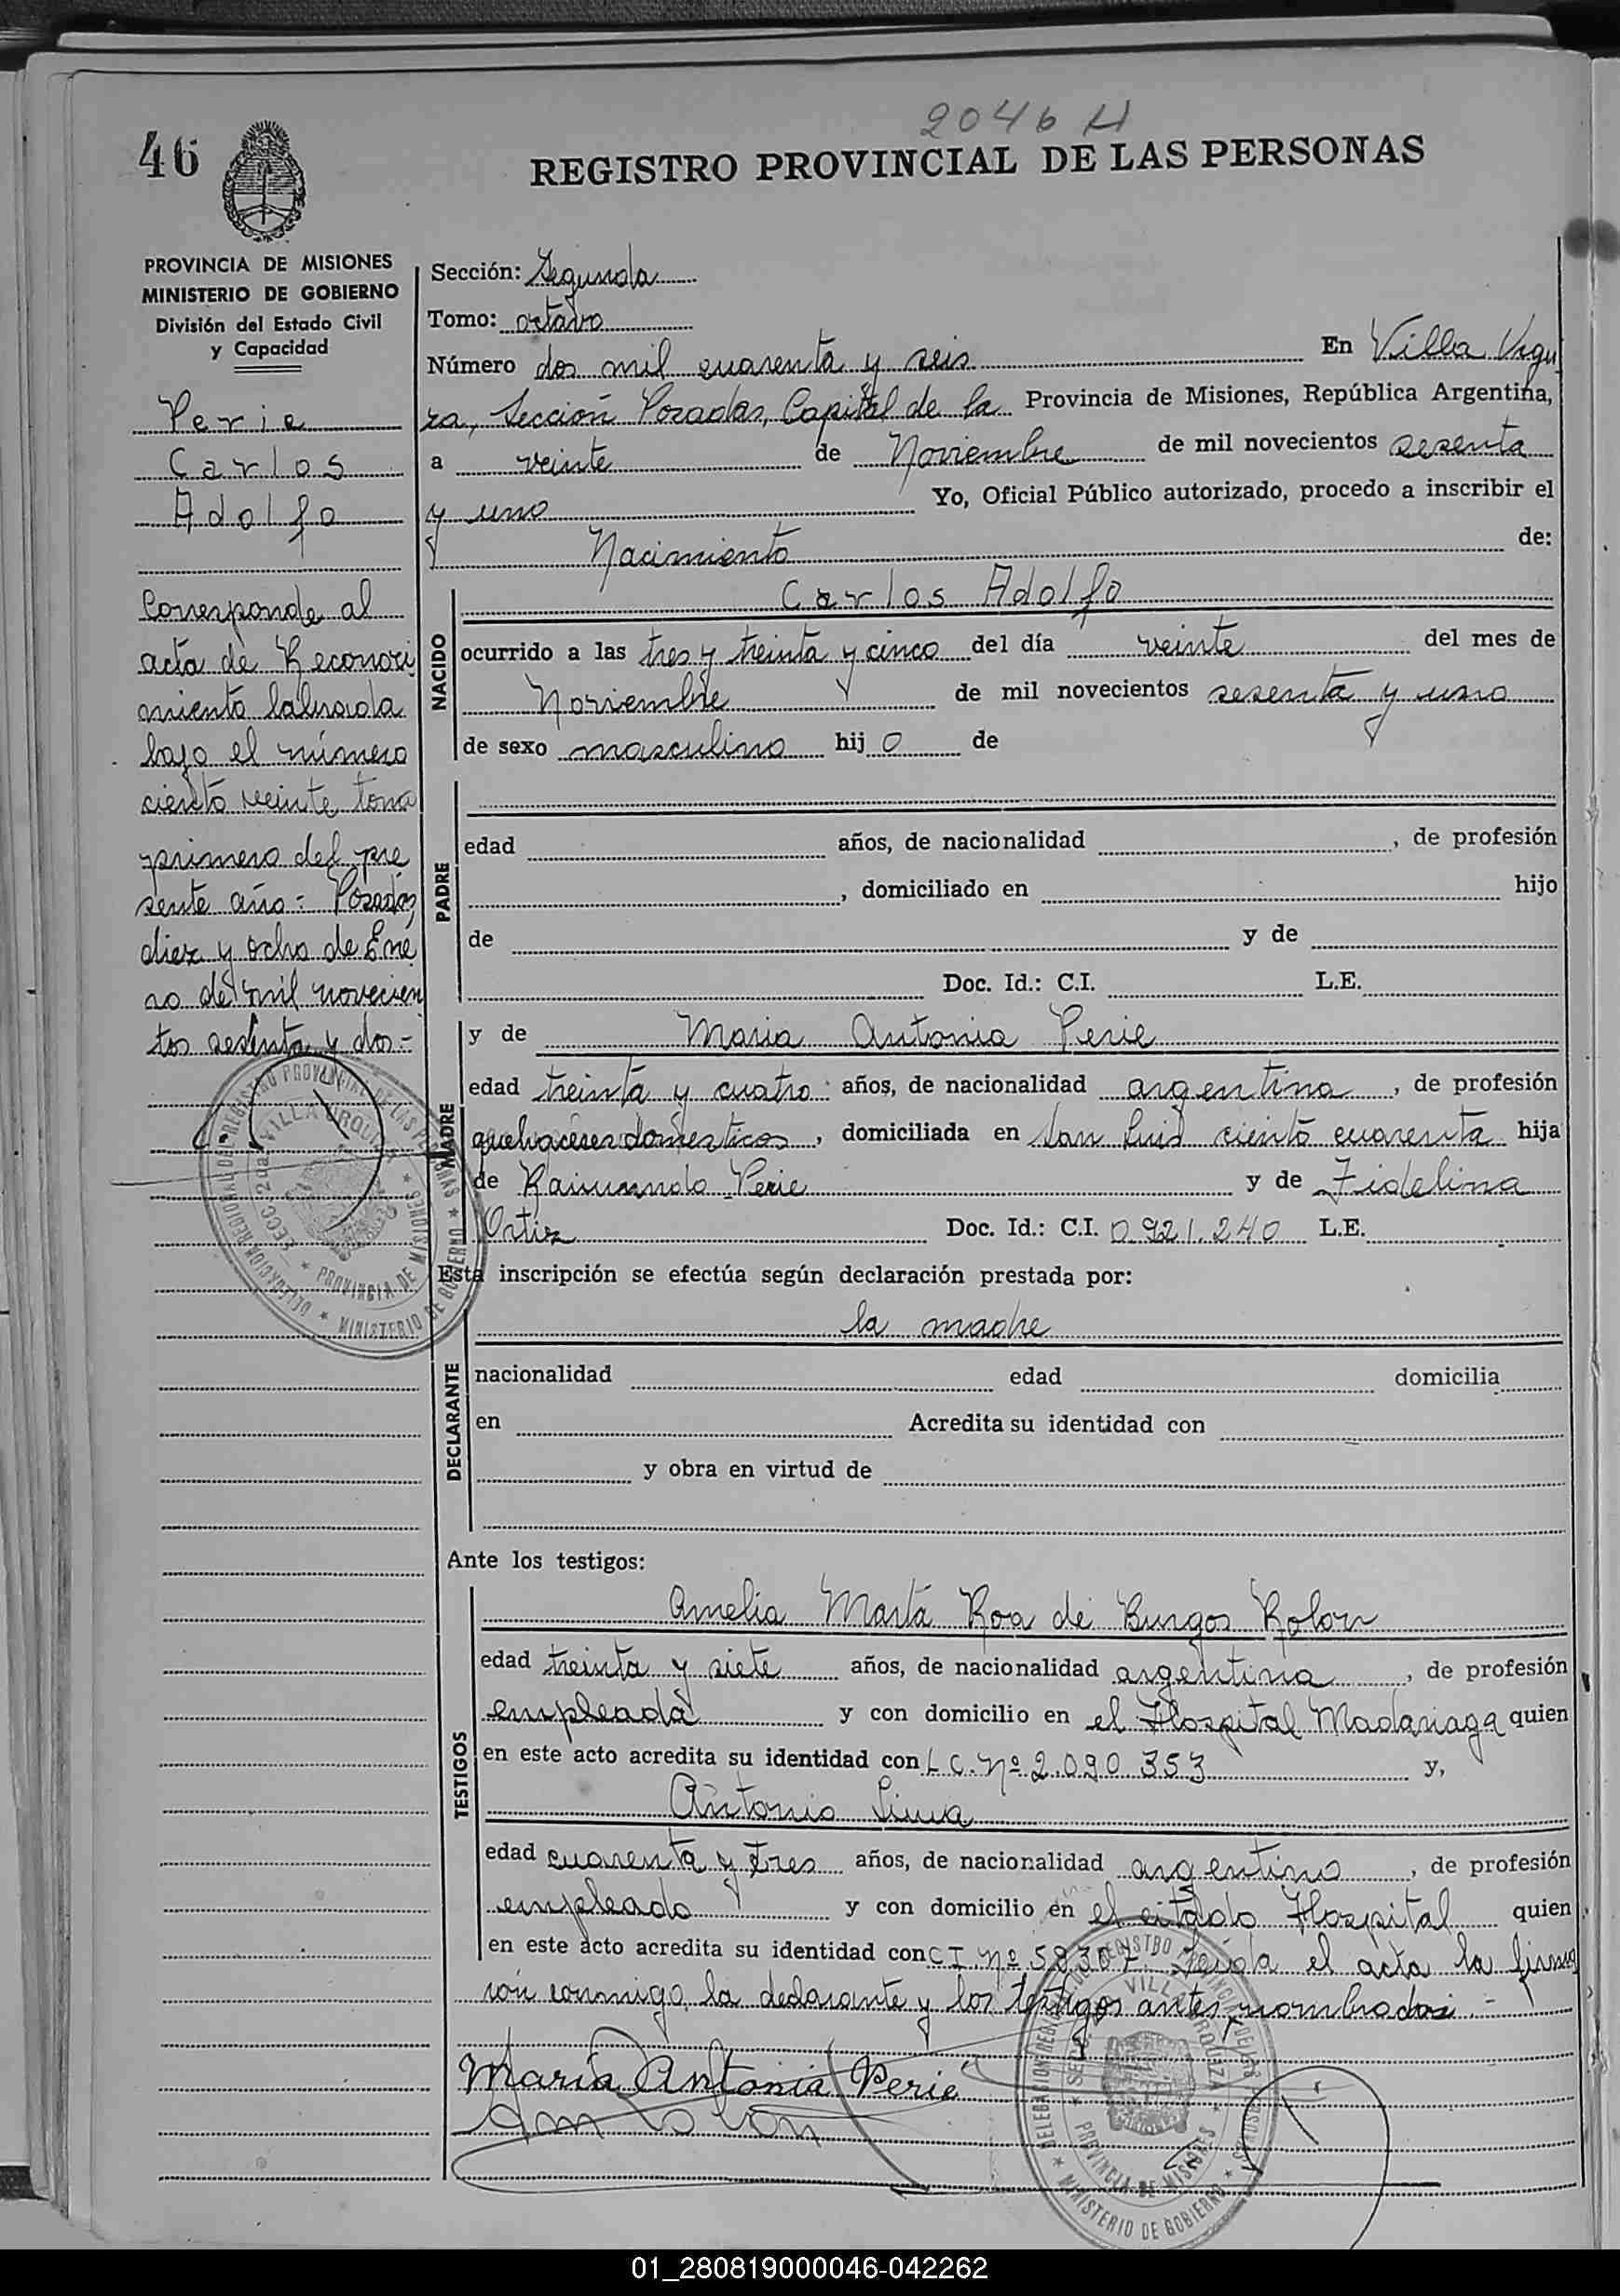 2046 H
46
REGISTRO PROVINCIAL DE LAS PERSONAS
PROVINCIA DE MISIONES
MINISTERIO DE GOBIERNO
División del Estado Civil
y Capacidad
Perie
Carlos
Adolfo
Corresponde al
acta de Reconoci
miento labrada
bajo el número
ciento veinte tomo
primero del pre
sente año= Posadas,
diez y ocho de Ene
ro de mil novecien
tos sesenta y dos=
Sección: Segunda
Tomo: octavo
Número dos mil cuarenta y seis En Villa Urqu
za, Sección Posadas, Capital de la Provincia de Misiones, República Argentina,
a veinte de Noviembre de mil novecientos sesenta
y uno Yo, Oficial Público autorizado, procedo a inscribir el
Nacimiento de:
NACIDO
Carlos Adolfo
ocurrido a las tres y treinta y cinco del día veinte del mes de
Noviembre de mil novecientos sesenta y uno
de sexo masculino hij o de
PADRE
edad años, de nacionalidad , de profesión
, domiciliado en hijo
de y de
Doc. Id.: C.I. L.E.
MADRE
y de Maria Antonia Perie
edad treinta y cuatro años, de nacionalidad argentina , de profesión
quehaceres domesticos , domiciliada en San Luis ciento cuarenta hija
de Raimundo Perie y de Fidelina
Ortiz Doc. Id.: C.I. 0.921.240 L.E.
Esta inscripción se efectúa según declaración prestada por:
DECLARANTE
la madre
nacionalidad edad domicilia
en Acredita su identidad con
y obra en virtud de
Ante los testigos:
TESTIGOS
Amelia Marta Roa de Burgos Rolon
edad treinta y siete años, de nacionalidad argentina , de profesión
empleada y con domicilio en el Hospital Madariaga quien
en este acto acredita su identidad con L C. Nº 2.090.353 y,
Antonio
edad cuarenta y tres años, de nacionalidad argentino , de profesión
empleado y con domicilio en el citado Hospital quien
en este acto acredita su identidad con C I. Nº 58307 Leida el acta la firma
ron conmigo, la declarante y los testigos antes nombrados.-
María Antonia Perie
DELEGACION REGIONAL DEL REGISTRO PROVINCIAL DE LAS PERSONAS
SECC. 2da. VILLA URQUIZA
PROVINCIA DE MISIONES
MINISTERIO DE GOBIERNO
01_280819000046-042262